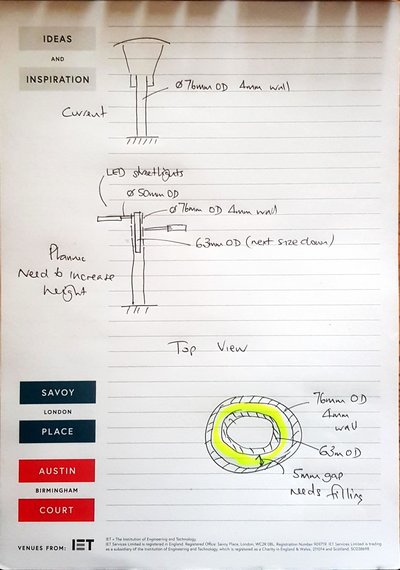 IDEAS
AND
INSPIRATION
Ø76mm OD 4mm wall
Current
LED streetlights
Ø50mm OD
Ø76mm OD 4mm wall
63mm OD (next size down)
Planning
Need to increase
height
Top View
SAVOY
LONDON
PLACE
AUSTIN
BIRMINGHAM
COURT
76mm OD
4mm
wall
63m OD
5mm gap
needs filling
VENUES FROM: IET
IET • The Institution of Engineering and Technology.
IET Services Limited is registered in England. Registered Office: Savoy Place, London, WC2R 0BL. Registration Number 909719. IET Services Limited is trading
as a subsidiary of the Institution of Engineering and Technology, which is registered as a Charity in England & Wales, 211014 and Scotland, SC038698.